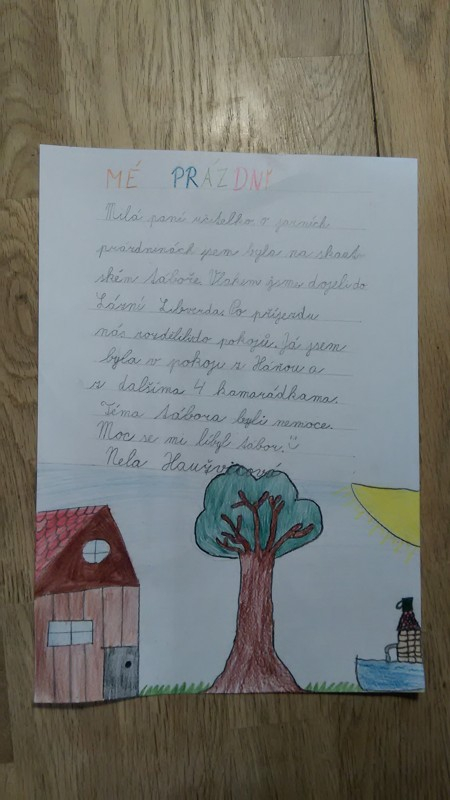 MÉ PRÁZDNY
Milá paní učitelko v jarních
prázdninách jsem byla na skaut-
ském táboře. Vlakem jsme dojeli do
Lázní Libverda. Po příjezdu
nás rozdělili do pokojů. Já jsem
byla v pokoji z Háňou a
z dalšíma 4 kamarádkama.
Téma tábora byli nemoce.
Moc se mi líbyl tábor.
Nela